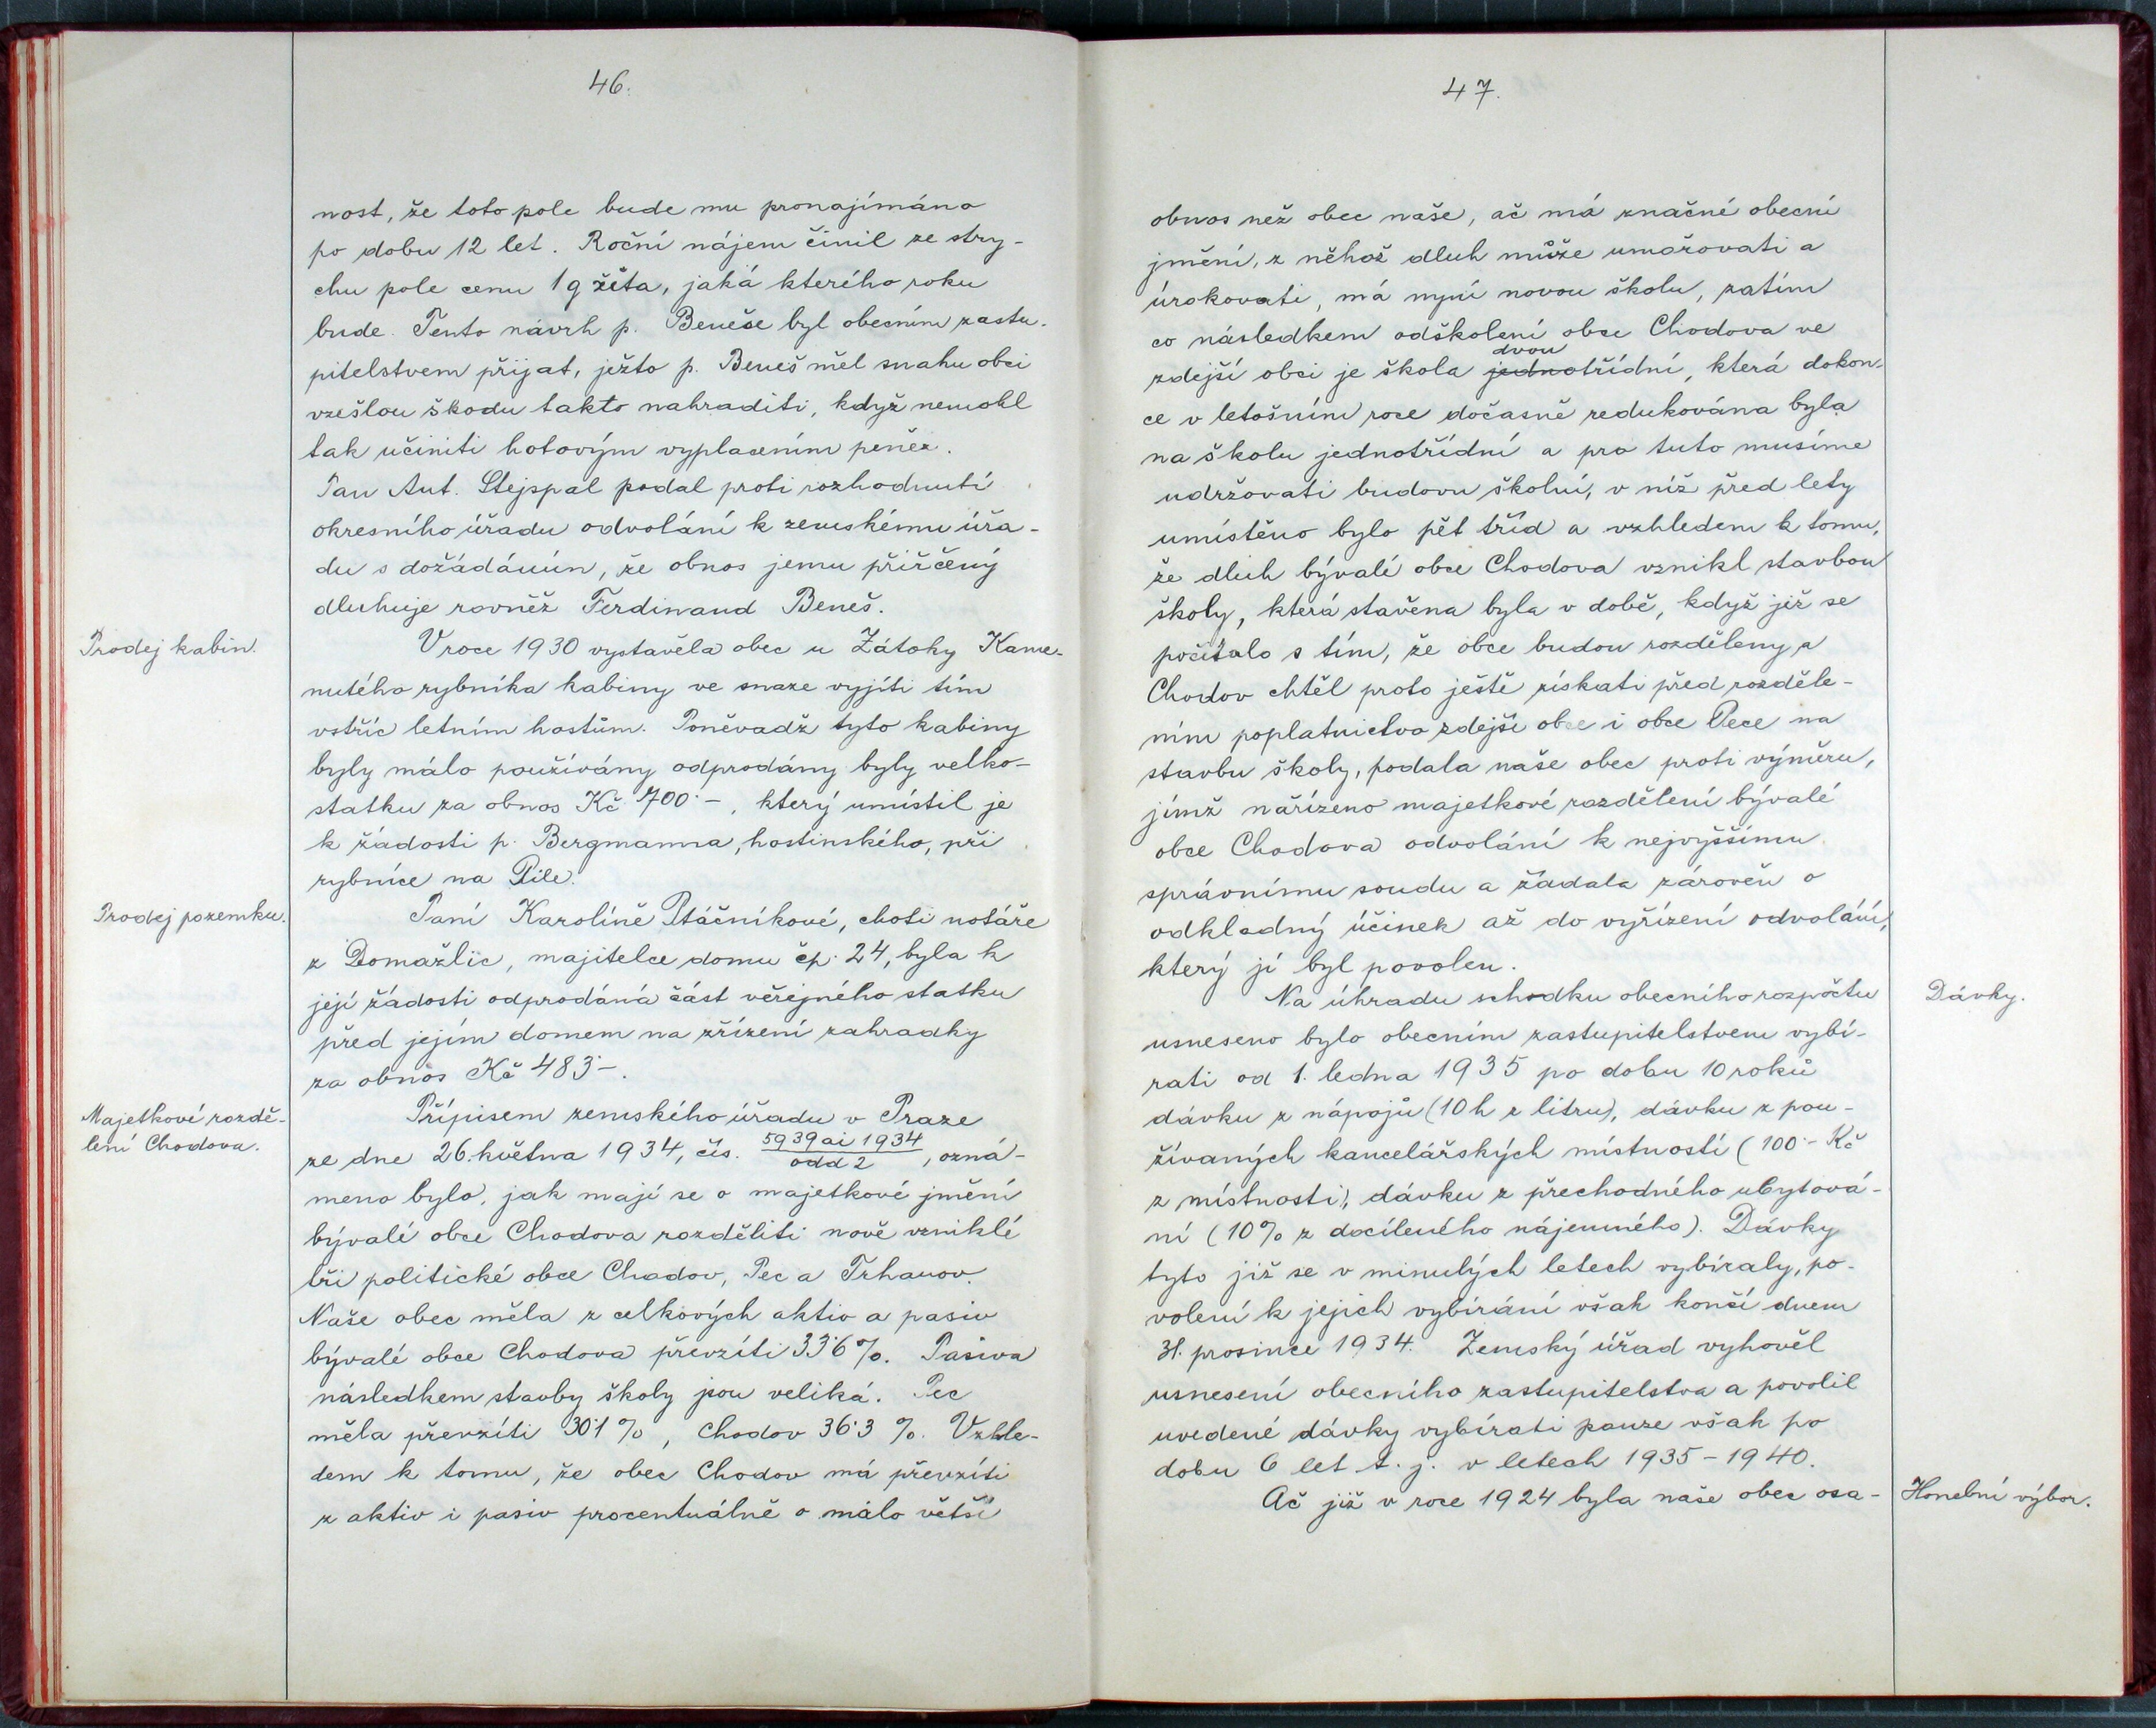 46.
nost, že toto pole bude mu pronajímáno
po dobu 12 let. Roční nájem činil ze stry-
chu pole cenu 1 q žita, jaká kterého roku
bude. Tento návrh p. Beneše byl obecním zastu-
pitelstvem přijat, ježto p. Beneš měl snahu obci
vzešlou škodu takto nahraditi, když nemohl
tak učiniti hotovým vyplacením peněz.
Pan Ant. Stejspal podal proti rozhodnutí
okresního úřadu odvolání k zemskému úřa-
du s dožádáním, že obnos jemu přiřčený
dluhuje rovněž Ferdinand Beneš.
Prodej kabin.
V roce 1930 vystavěla obec u Zátoky Kame-
nutého rybníka kabiny ve snaze vyjíti tím
vstříc letním hostům. Poněvadž tyto kabiny
byly málo používány odprodány byly velko-
statku za obnos Kč 700·-, který umístil je
k žádosti p. Bergmanna, hostinského, při
rybníce na Pile.
Prodej pozemku.
Paní Karolíně Ptáčníkové, choti notáře
z Domažlic, majitelce domu čp. 24, byla k
její žádosti odprodáná část veřejného statku
před jejím domem na zřízení zahradky
za obnos Kč 483·-.
Majetkové rozdě-
lení Chodova.
Přípisem zemského úřadu v Praze
ze dne 26. května 1934, čís. 5939 ai 1934 / odd 2, ozná-
meno bylo, jak mají se o majetkové jmění
bývalé obce Chodova rozděliti nově vzniklé
tři politické obce Chodov, Pec a Trhanov.
Naše obec měla z celkových aktiv a pasiv
bývalé obce Chodova převzíti 33·6 %. Pasiva
následkem stavby školy jsou veliká. Pec
měla převzíti 30·1 %, Chodov 36·3 %. Vzhle-
dem k tomu, že obec Chodov má převzíti
z aktiv i pasiv procentuálně o málo větší
47.
obnos než obec naše, ač má značné obecní
jmění, z něhož dluh může umořovati a
úrokovati, má nyní novou školu, zatím
co následkem odškolení obce Chodova ve
dvou
zdejší obci je škola jednotřídní, která dokon-
ce v letošním roce dočasně redukována byla
na školu jednotřídní a pro tuto musíme
udržovati budovu školní, v níž před lety
umístěno bylo pět tříd a vzhledem k tomu,
že dluh bývalé obce Chodova vznikl stavbou
školy, která stavěna byla v době, když již se
počítalo s tím, že obce budou rozděleny a
Chodov chtěl proto ještě získati před rozděle-
ním poplatnictvo zdejší obce i obce Pece na
stavbu školy, podala naše obec proti výměru,
jímž nařízeno majetkové rozdělení bývalé
obce Chodova odvolání k nejvyššímu
správnímu soudu a žádala zároveň o
odkladný účinek až do vyřízení odvolání,
který jí byl povolen.
Dávky.
Na úhradu schodku obecního rozpočtu
usneseno bylo obecním zastupitelstvem vybí-
rati od 1. ledna 1935 po dobu 10 roků
dávku z nápojů (10 h z litru), dávku z pou-
žívaných kancelářských místností (100·- Kč
z místnosti), dávku z přechodného ubytová-
ní (10% z docíleného nájemného). Dávky
tyto již se v minulých letech vybíraly, po-
volení k jejich vybírání však končí dnem
31. prosince 1934. Zemský úřad vyhověl
usnesení obecního zastupitelstva a povolil
uvedené dávky vybírati pouze však po
dobu 6 let t. j. v letech 1935 - 1940.
Honební výbor.
Ač již v roce 1924 byla naše obec osa-